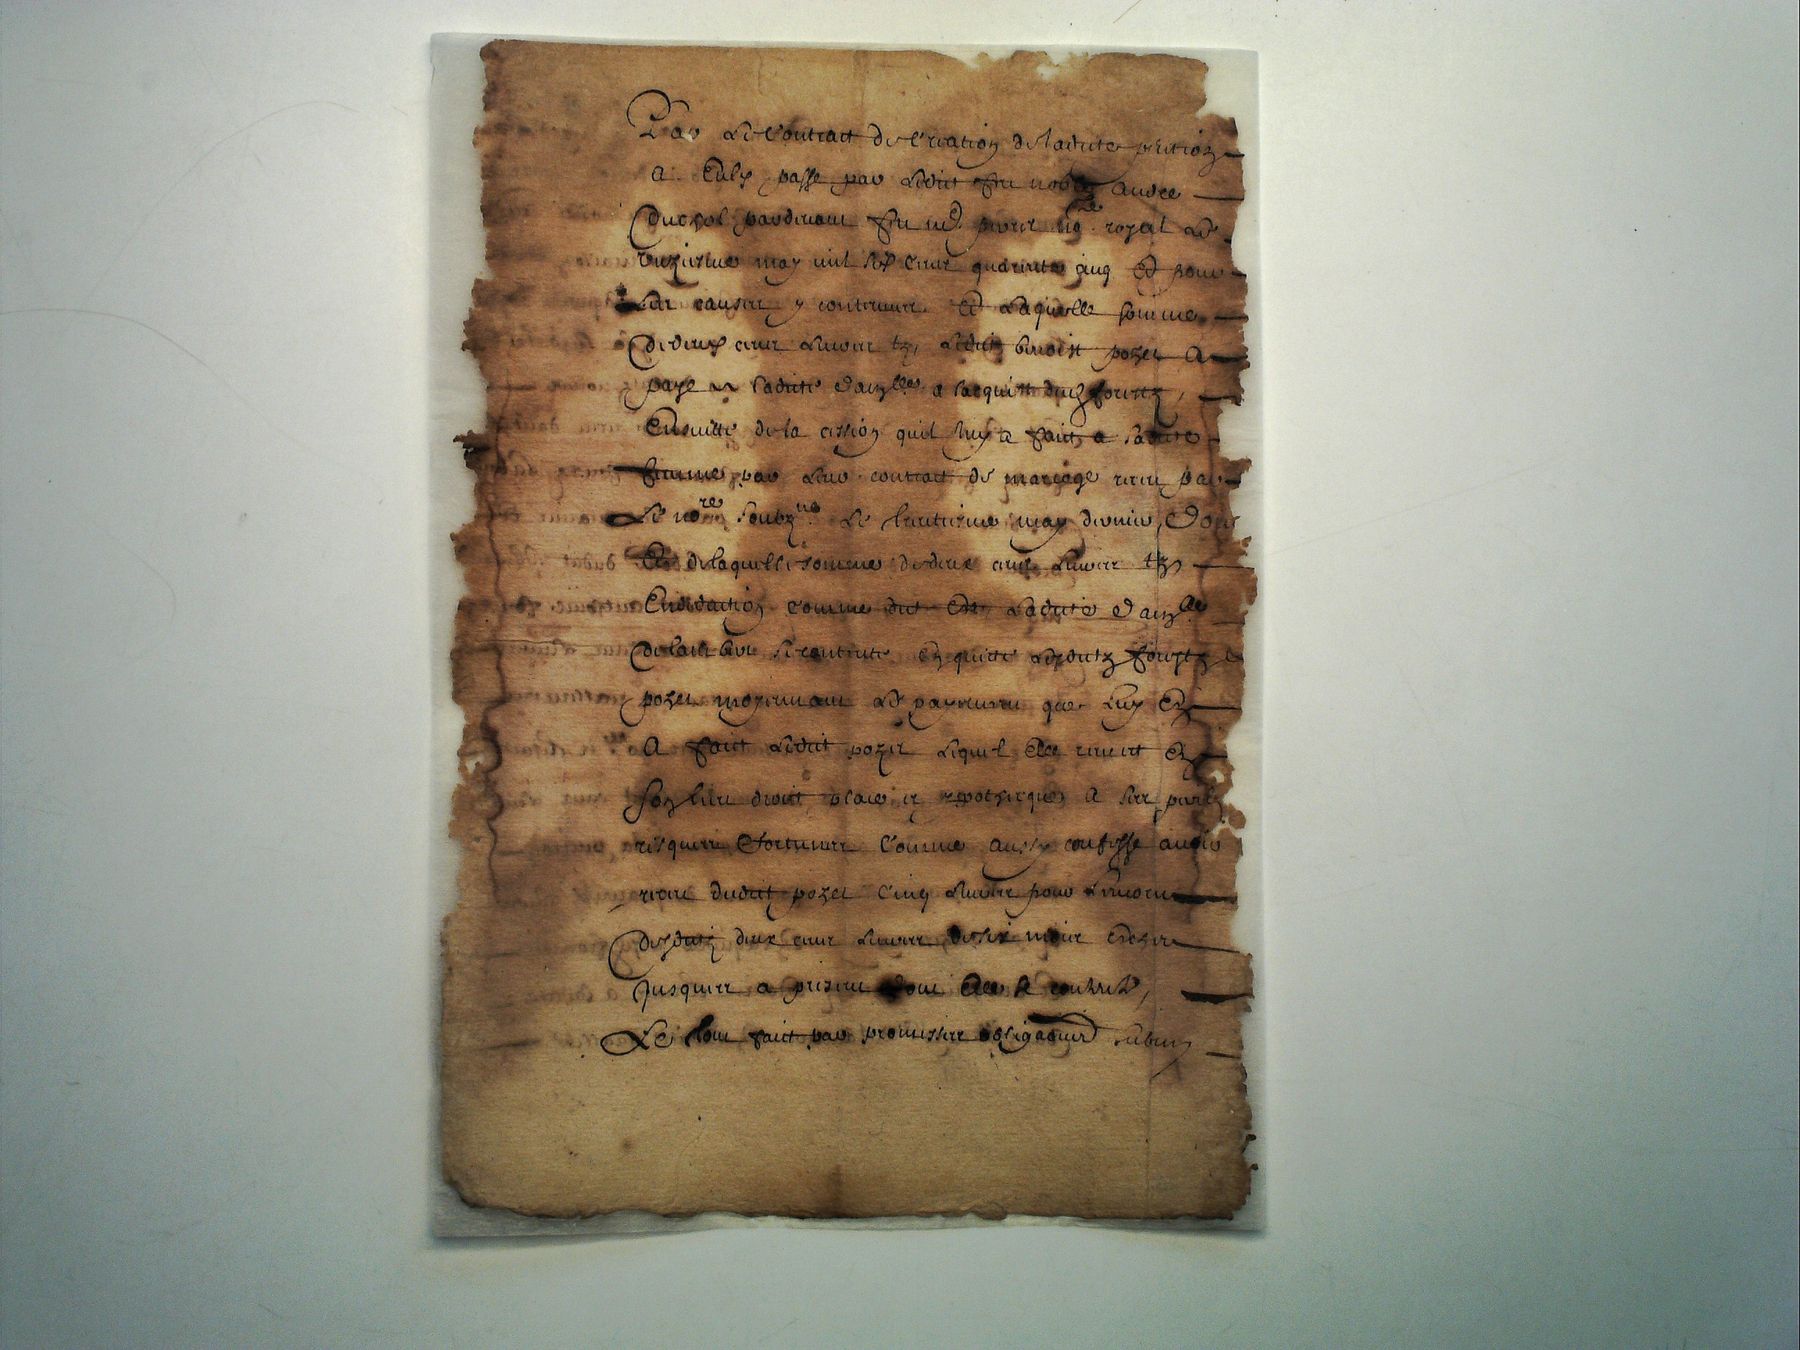 Par le Contract de Creation de ladicte pention
a Eulx passe par ledit feu noble André
Duchol pardevant feu me nore royal le
unziesme may mil six cens quarente cinq Et pour
les causes y contenues Et laquelle somme
de deux cens livres tz, ledit benoist pozet a
paye a ladicte dam.lle a lacquist dud
Ensuitte de la cession quil luy a fait a sadite
femme par leur contract de mariage receu par
Le no.re soubz.ne Le huictiesme may dernier, Dont
Et de laquelle somme de deux cens livres tz
Endeduction comme dit Est ladicte dam.lle
se contente En quicte
pozet moyennant Le payement que luy En
A fait ledit pozet lequel elle remect En
son lieu droict place et ypotheque A ses perilz
risques Efortunes Comme aussy confesse avoir
receu dudit pozet Cinq livres pour
desditz deux cens livres de six mois Escheu
Jusques a present dont elle se contente,
Le tout fait par promesses obligaons